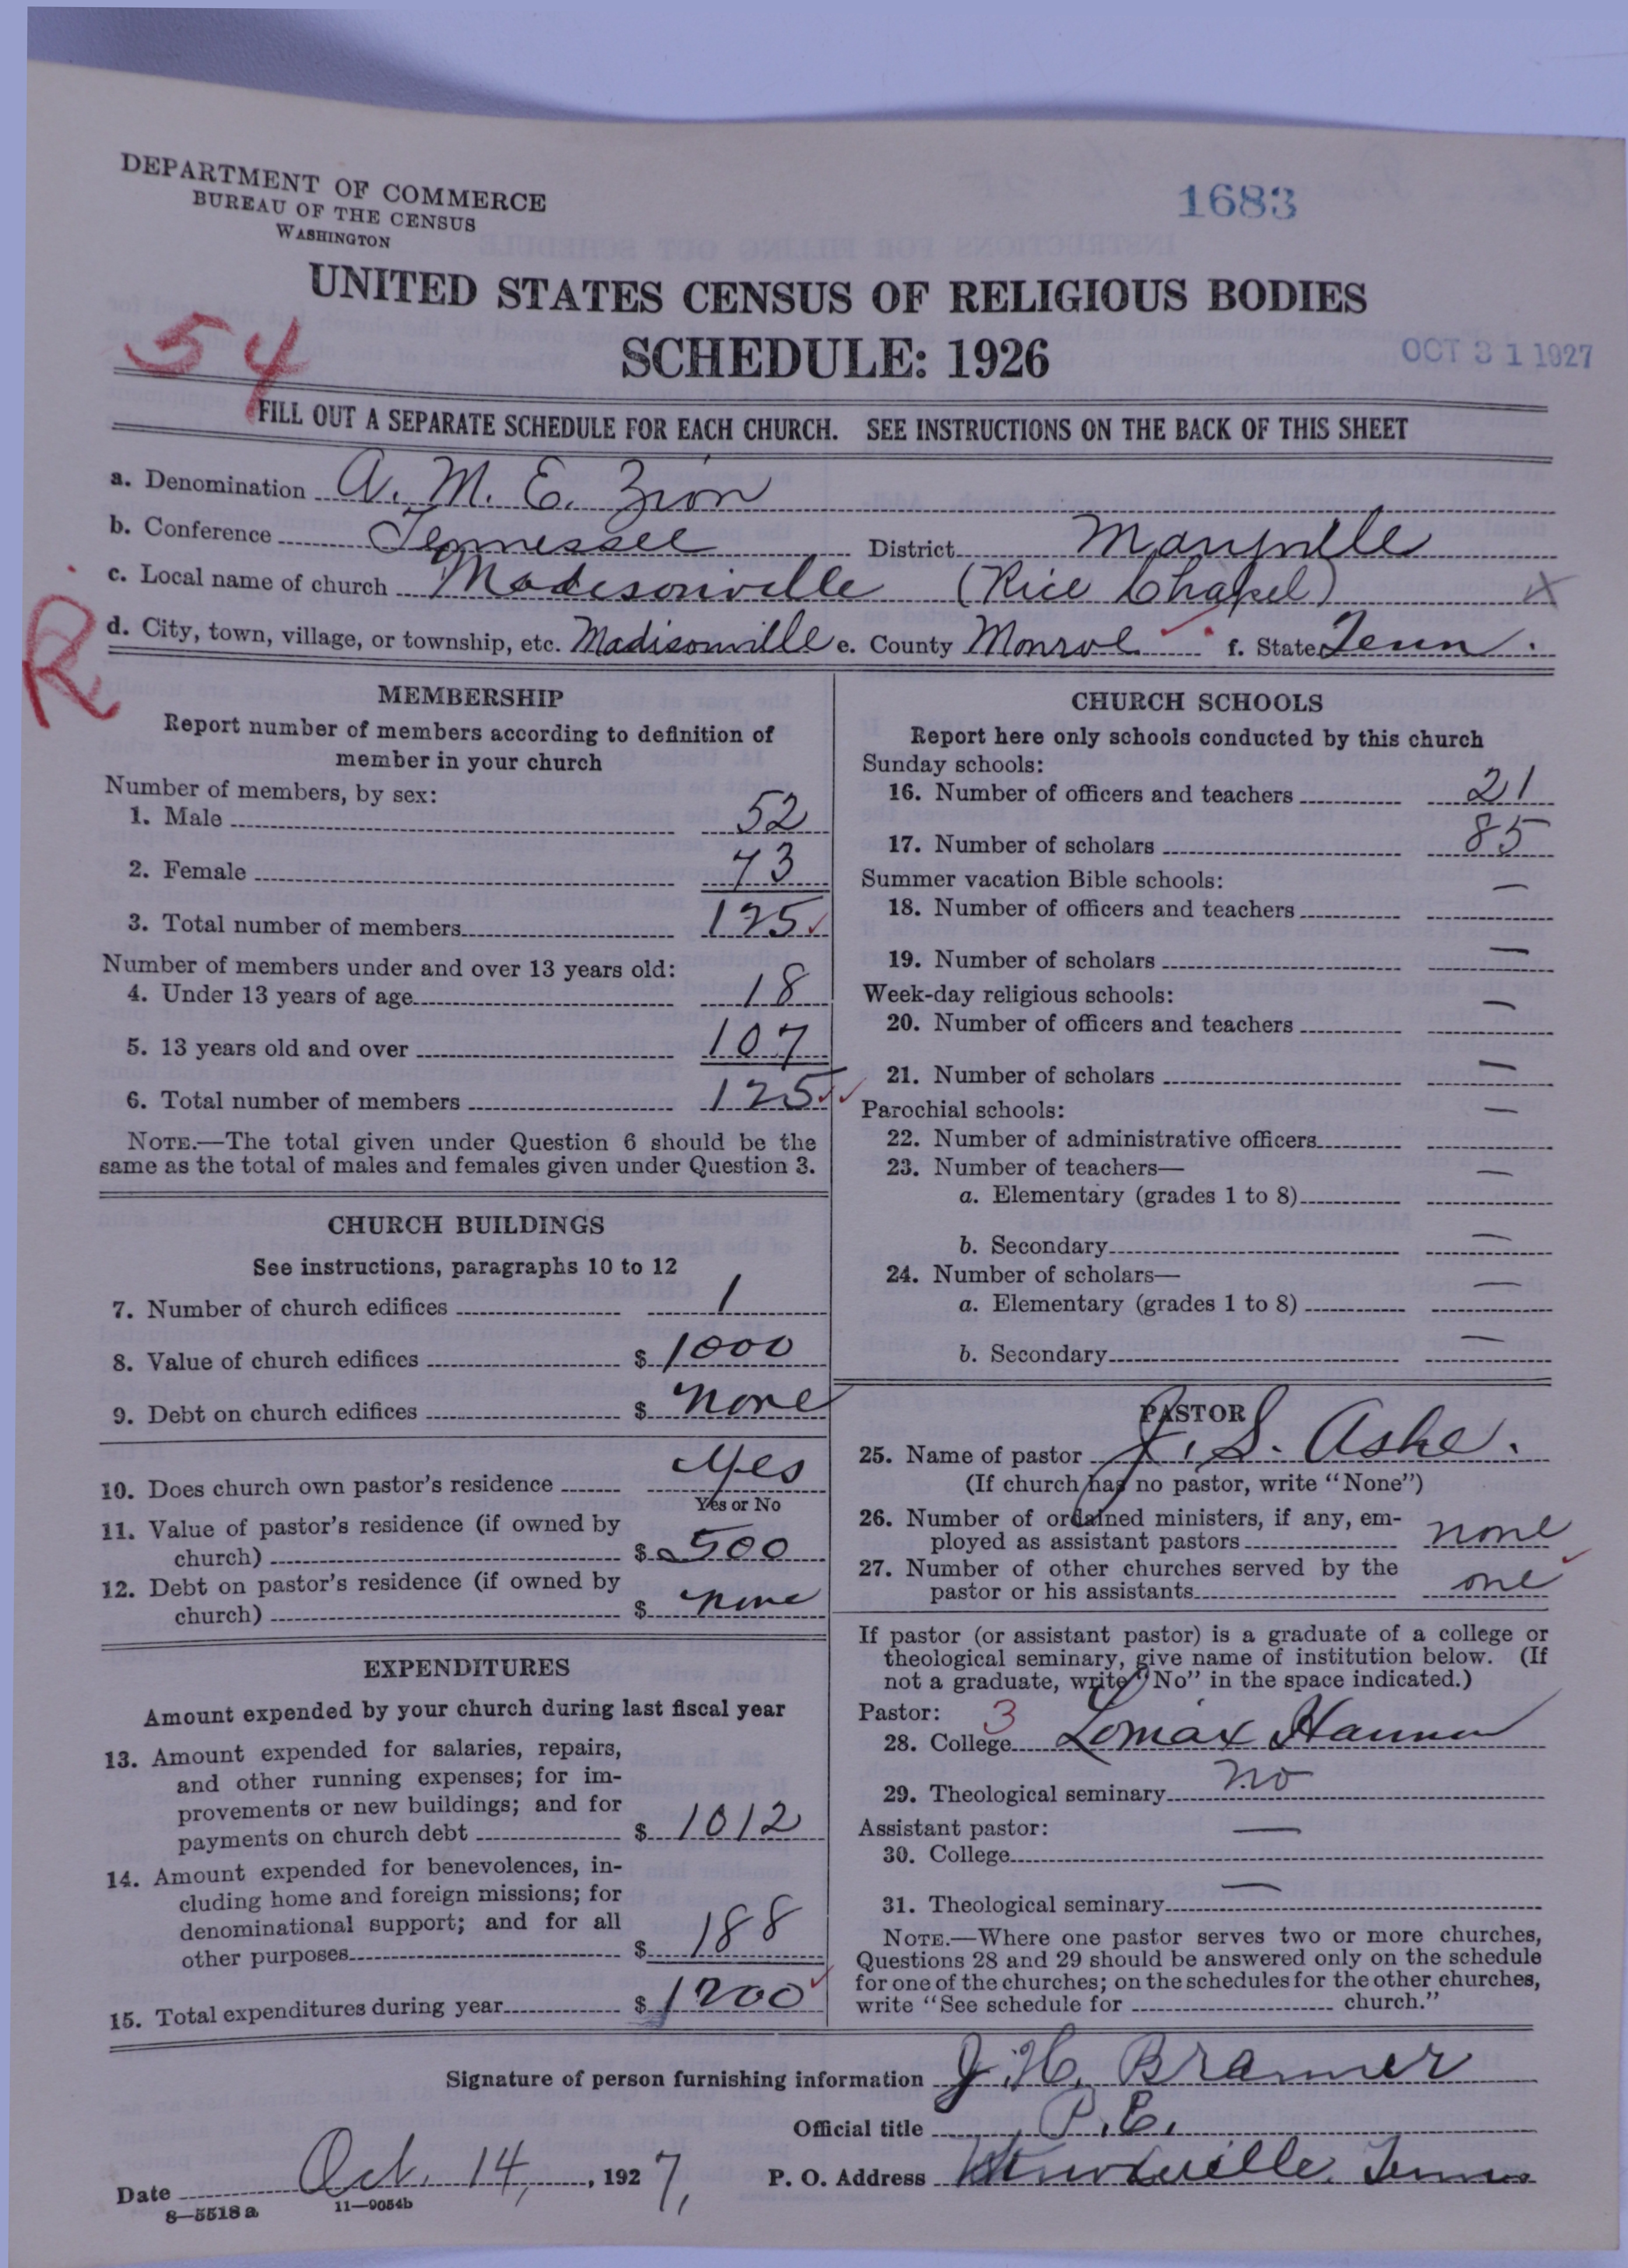 DEPARTMENT OF COMMERCE
BUREAU OF THE CENSUS
WASHINGTON
1683
UNITED STATES CENSUS OF RELIGIOUS BODIES
SCHEDULE: 1926
OCT 31 1927
54
FILL OUT A SEPARATE SCHEDULE FOR EACH CHURCH. SEE INSTRUCTIONS ON THE BACK OF THIS SHEET
a. Denomination A. M. E. Zion
b. Conference Tennessee District Maryville
c. Local name of church Madisonville (Rice Chapel) X
d. City, town, village, or township, etc. Madisonville e. County Monroe f. State Tenn.
R
MEMBERSHIP
Report number of members according to definition of
member in your church
Number of members, by sex:
1. Male 52
2. Female 73
3. Total number of members 125
Number of members under and over 13 years old:
4. Under 13 years of age 18
5. 13 years old and over 107
6. Total number of members 125
NOTE.—The total given under Question 6 should be the
same as the total of males and females given under Question 3.
CHURCH BUILDINGS
See instructions, paragraphs 10 to 12
7. Number of church edifices 1
8. Value of church edifices $ 1000
9. Debt on church edifices $ none
10. Does church own pastor's residence yes
Yes or No
11. Value of pastor's residence (if owned by
church) $ 500
12. Debt on pastor's residence (if owned by
church) $ none
EXPENDITURES
Amount expended by your church during last fiscal year
13. Amount expended for salaries, repairs,
and other running expenses; for im-
provements or new buildings; and for
payments on church debt $ 1012
14. Amount expended for benevolences, in-
cluding home and foreign missions; for
denominational support; and for all
other purposes $ 188
15. Total expenditures during year $ 1200
CHURCH SCHOOLS
Report here only schools conducted by this church
Sunday schools:
16. Number of officers and teachers 21
17. Number of scholars 85
Summer vacation Bible schools:
18. Number of officers and teachers —
19. Number of scholars —
Week-day religious schools:
20. Number of officers and teachers —
21. Number of scholars —
Parochial schools:
22. Number of administrative officers —
23. Number of teachers—
a. Elementary (grades 1 to 8) —
b. Secondary —
24. Number of scholars—
a. Elementary (grades 1 to 8) —
b. Secondary —
PASTOR
25. Name of pastor J. S. Ashe.
(If church has no pastor, write "None")
26. Number of ordained ministers, if any, em-
ployed as assistant pastors none
27. Number of other churches served by the
pastor or his assistants one
If pastor (or assistant pastor) is a graduate of a college or
theological seminary, give name of institution below. (If
not a graduate, write "No" in the space indicated.)
Pastor: 3
28. College Lomax Hannon
29. Theological seminary no
Assistant pastor:
30. College —
31. Theological seminary —
NOTE.—Where one pastor serves two or more churches,
Questions 28 and 29 should be answered only on the schedule
for one of the churches; on the schedules for the other churches,
write "See schedule for church."
Signature of person furnishing information J. H. Bramer
Official title P. E.
Date Oct. 14, 1927, P. O. Address Knoxville, Tenn
8—5518 a 11—9054b